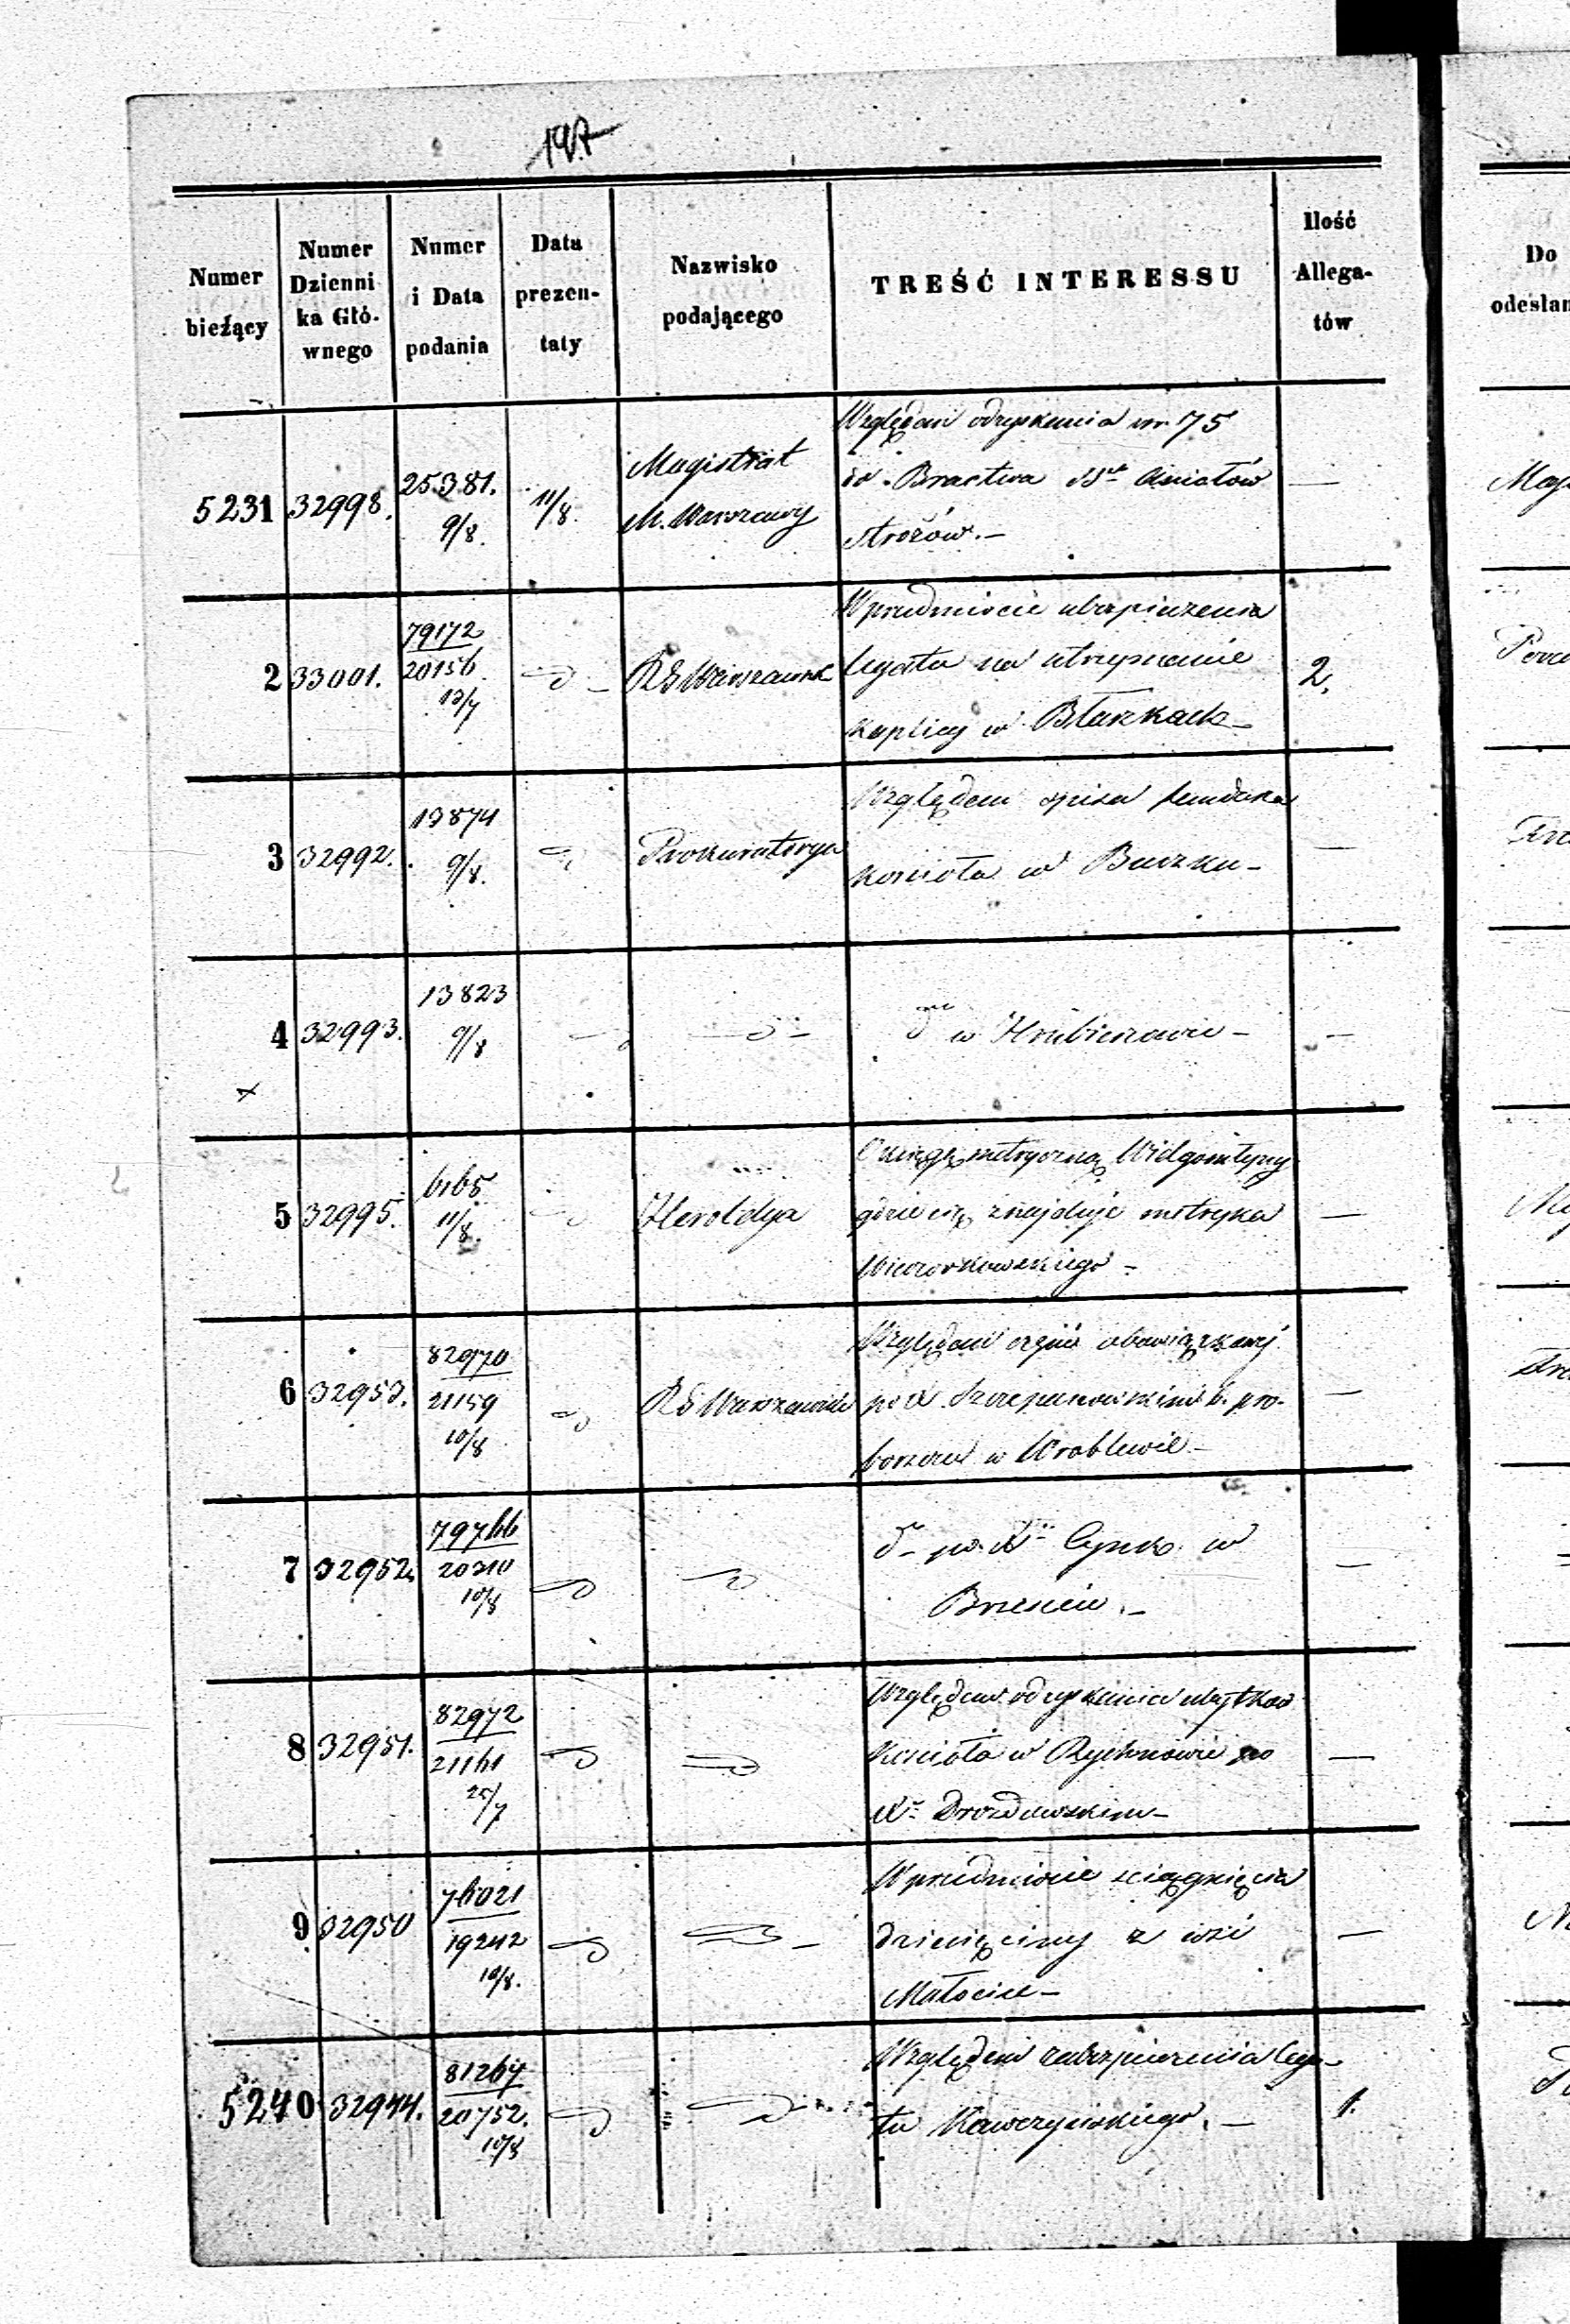 197
Numer bieżący
Numer Dzienni ka Głó- wnego
Numer i Data podania
Data prezen- taty
Nazwisko podającego
TREŚĆ INTERESSU
Ilość Allega- tów
Do
odesłan
5231 32998. 25381. 9/8. 11/8. Magistrat M. Warszawy
Względem odzyskania 75
do Bractwa Aniołów
stróżów.—
—
2 33001. 79172 20156 13/7 RG Warszawsk
W przedmiocie ubezpieczenia
legatu na utrzymanie
kaplicy w Błaszkach—
2.
3 32992. 13874 9/8. Prokuratorya
Względem spisu fundusza
kościoła w Buczku—
—
4 32993. 13823 9/8
w Hrubieszowie—
—
5 32995. 6165 11/8. Heroldya
O księgę metryczną
gdzie się znajduje metryka
Wieczorkowskiego—
—
6 32953. 82970 21159 10/8 RG Warszawski
Względem części obowiązkowej
po X. Szczepanowskim b. pro-
boszczu w Wroblewie—
—
7 32952. 79766 20310 10/8
po X. w
Brześciu.—
—
8 32951. 82972 21161 25/7
Względem odzyskania ubytków
kościoła w Rychnowie po
X. Drozdowskim—
—
9 32950 76021 19242 10/8.
W przedmiocie ściągnięcia
dziesięciny z wsi
Małocice—
—
5240 32944. 81264 20752. 10/8
Względem zabezpieczenia lega-
tu Kawczyńskiego.—
1.